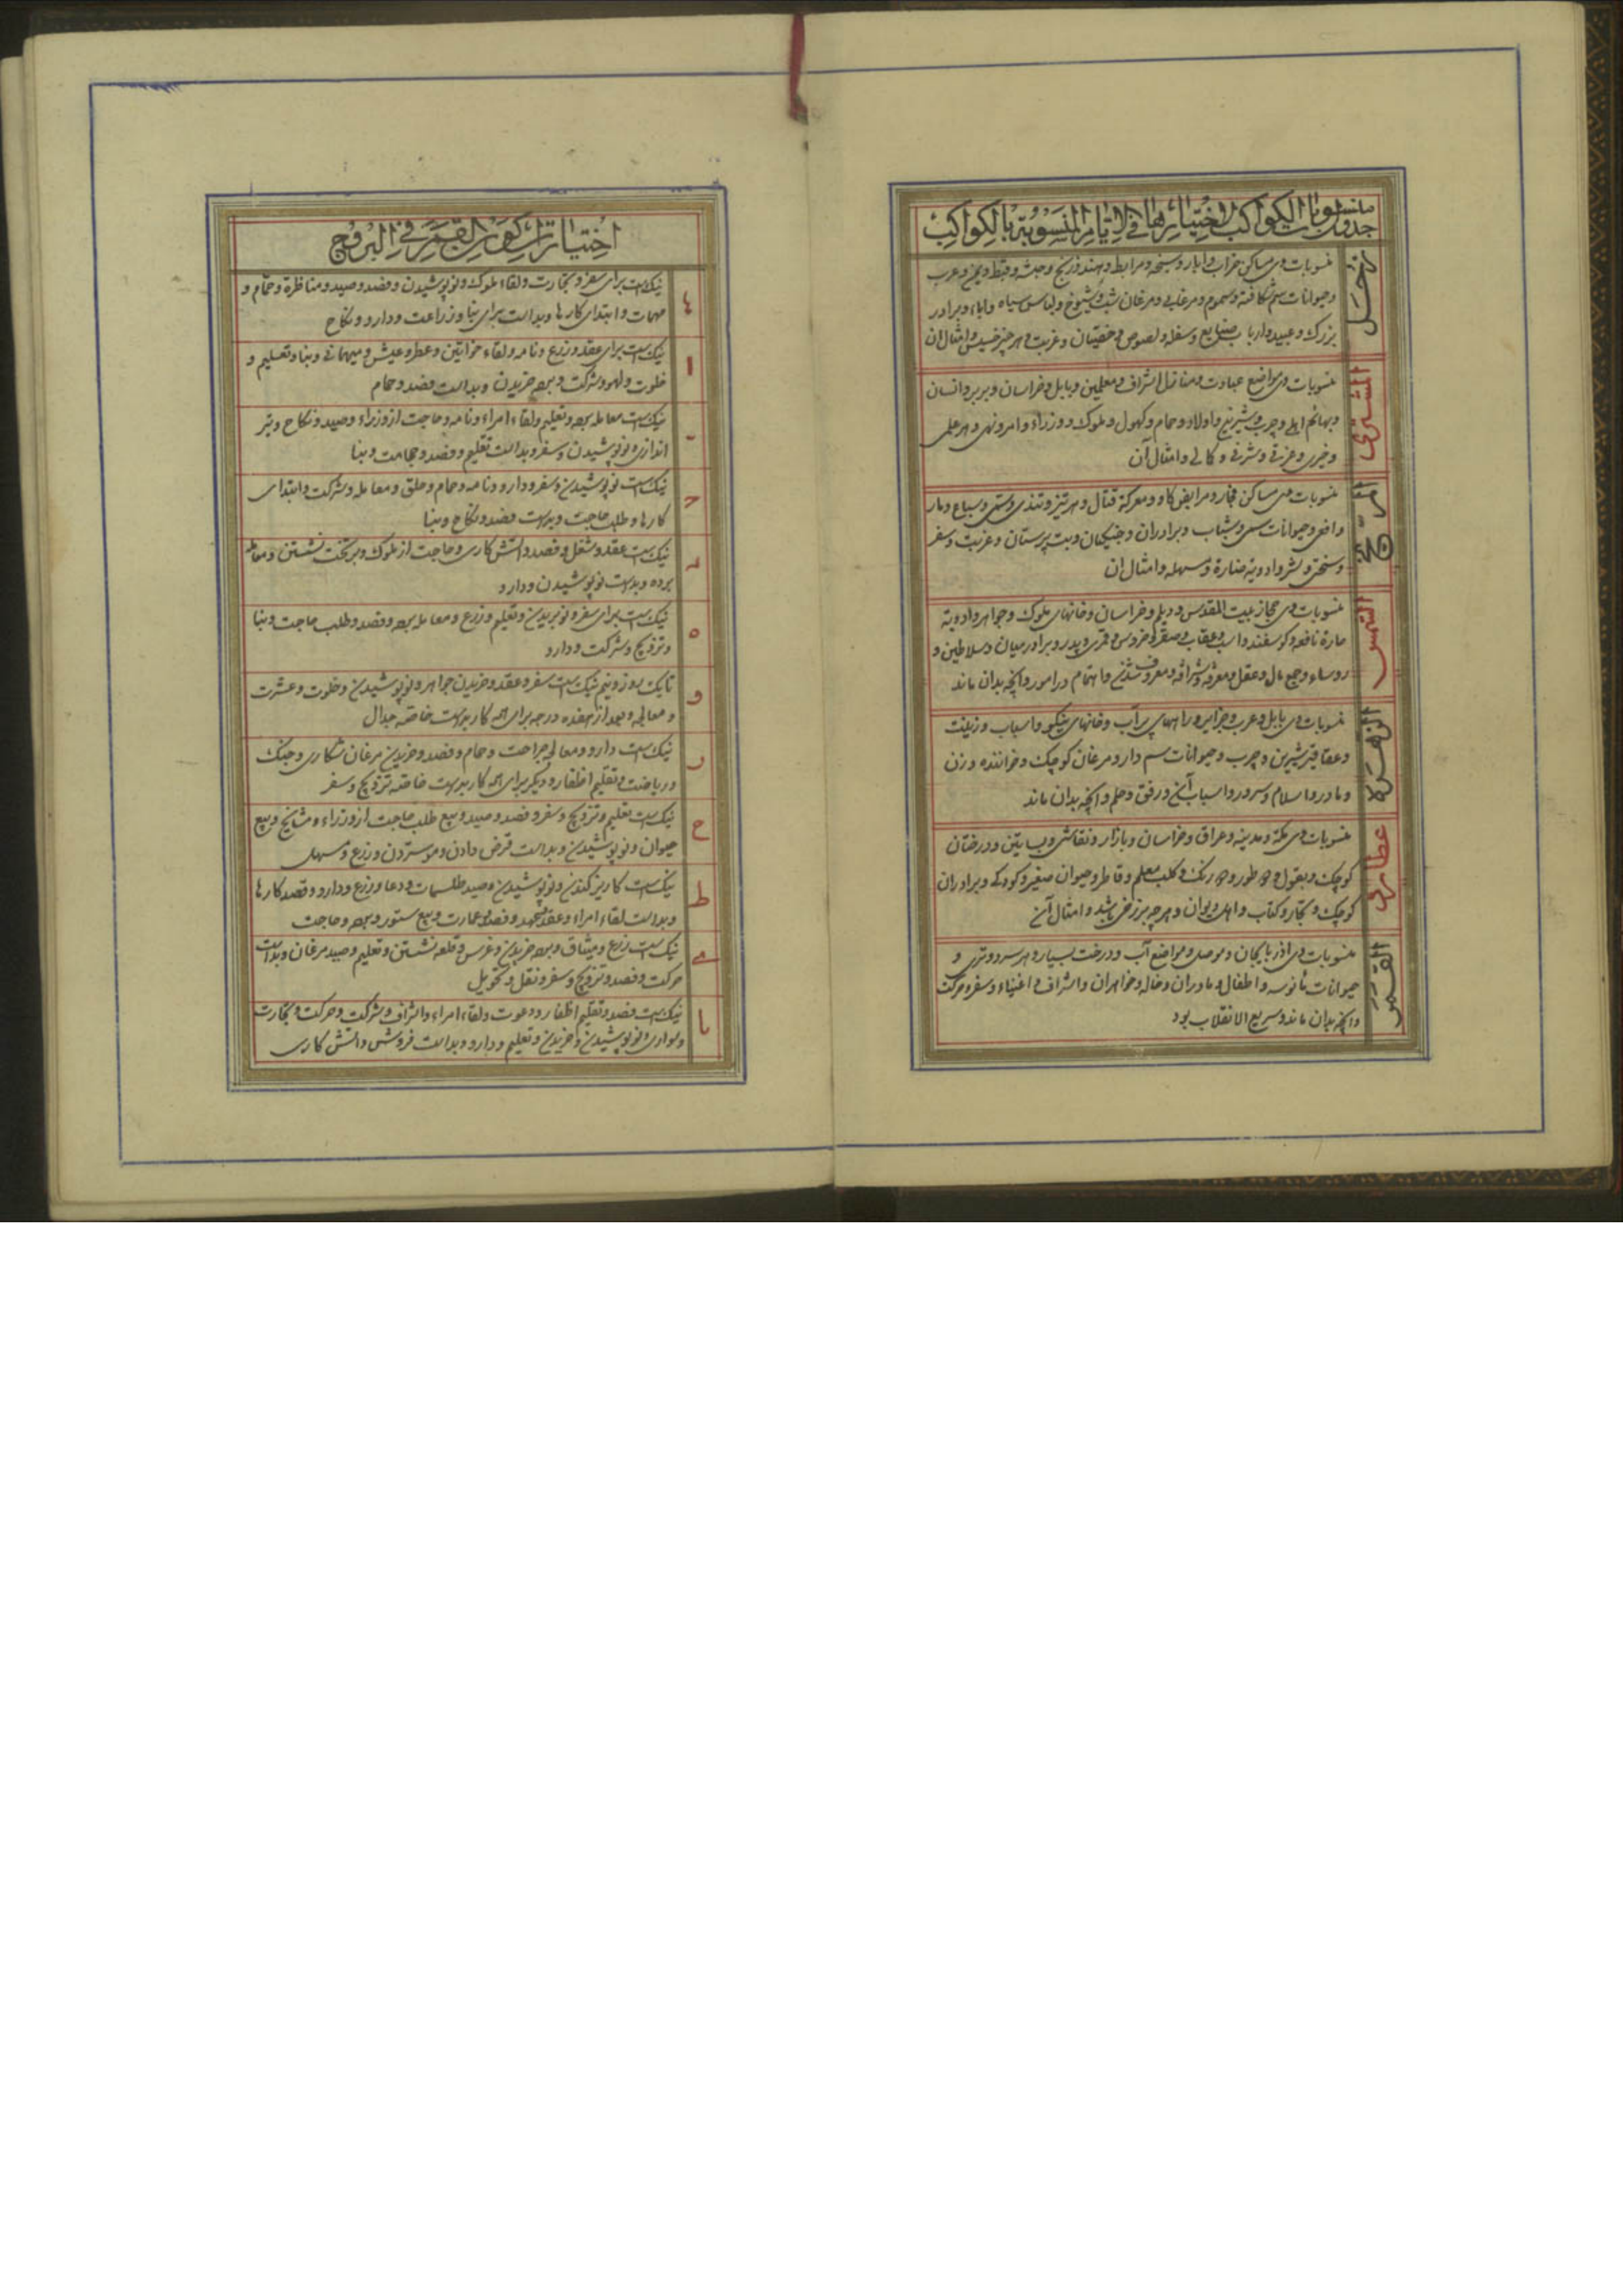 جدول منسوبات الکواکب لاختیاراتها فی الایام المنسوبة بالکواکب
زحل
منسوبات وی مساکن خراب و ابار و سبخه و مرابط و هند و زنج و حبشه و قبط و یمن و عرب
و حیوانات سم شکافته و سموم و مرغابی و مرغان شب و شیوخ و لباس سیاه و اباء و برادر
بزرک و عبید و ارباب صنایع و سفله و لصوص و خفیتان و غربت و هر چیز خسیس و امثال ان
المشتری
منسوبات وی مواضع عبادت و منازل اشراف و معلمین و بابل و خراسان و بربر و انسان
و بهائم اهلی و چرب و شیرینی و اولاد و حمام و کهول و ملوک و وزراء و امر و نهی و هر علمی
و خیری و عزتی و شرفی و کمالی و امثال آن
مریخ
منسوبات وی مساکن فخار و مرابض کاو و معرکة قتال و هر تیز و تندی و سباع و مار
و افعی و حیوانات و شباب و برادران و جنیکیان و بت پرستان و غربت و سفر
و سختی و شر و ادویه ضارة و مسهله و امثال ان
الشمس
منسوبات وی حجاز بیت المقدس و دیلم و خراسان و خانهای ملوک و جواهر و ادویة
حارة نافعه و کوسفند و اسب و عقاب و صقر و خروس و قمری و پدر و برادر میان و سلاطین و
روساء و جمع مال و عقل و معرفة و شرافة و معروف شدن و اهتمام در امور و آنچه بدان ماند
الزهرة
منسوبات وی بابل و عرب و جزایر و راههای پر آب و خانهای نیکو و اسباب و زینت
و عقاقیر شیرین و چرب و حیوانات سم دار و مرغان کوچک و خواننده و زن
و مادر و اسلام و سرور و اسباب آن و رفق و حلم و آنچه بدان ماند
عطارد
منسوبات وی مکة و مدینه و عراق و خراسان و بازار و نقاشی و بساتین و درختان
کوچک و بقول و رنک و کلب معلم و قاطر و حیوان صغیر و کودک و برادران
کوچک و تجار و کتاب و اهل دیوان و هر چه باشد و امثال آن
القمر
منسوبات وی اذربایجان و موصل و مواضع آب و درخت بسیار و هر سرد و تری و
حیوانات مأنوسه و اطفال و مادران و خاله و خواهران و اشراف و اغنیاء و سفر و حرکت
و آنچه بدان ماند و سریع الانقلاب بود
اختیارات کون القمر فی البروج
نیک است برای سفر و تجارت و لقاء ملوک و نو پوشیدن و فصد و صید و مناظرة و حمام و
مهمات و ابتدای کارها و بد است برای بنا و زراعت و دارو و نکاح
ا
نیک است برای عقد و زرع و نامه و لقاء خواتین و عطر و عیش و میهمانی و بنا و تعلیم و
خلوت و لهو و شرکت و برده خریدن و بد است فصد و حمام
نیک است معامله برده و تعلیم و لقاء امراء و نامه و حاجت از وزراء و صید و نکاح و تیر
اندازی و نو پوشیدن و سفر و بد است تقلیم و فصد و حجامت و بنا
نیک است نو پوشیدن و سفر و دارو و نامه و حمام و حلق و معامله و شرکت و ابتدای
کارها و طلب حاجت و بد است فصد و نکاح و بنا
د
نیک است عقد و شغل و فصد و آتش کاری و حاجت از ملوک و بر تخت نشستن و معامله
برده و بد است نو پوشیدن و دارو
ه
نیک است برای سفر و نو بریدن و تعلیم و زرع و معامله برده و فصد و طلب حاجت و بنا
و تزویج و شرکت و دارو
و
تا یک روز و نیم نیک است سفر و عقد و خریدن جواهر و نو پوشیدن و خلوت و عشرت
و معالجه و بعد از هفده درجه برای همه کار بد است خاصه جدال
ر
نیک است دارو و معالجه جراحت و حمام و فصد و خریدن مرغان شکاری و جنک
و ریاضت و تقلیم اظفار و دیکر برای همه کار بد است خاصه تزویج و سفر
ح
نیک است تعلیم و تزویج و سفر و فصد و صید و بیع طلب حاجت از وزراء و مشایخ و بیع
حیوان و نو پوشیدن و بد است قرض دادن و مو ستردن و زرع و مسهل
ط
نیک است کاریز کندن و نو پوشیدن و صید طلسمات و دعا و زرع و دارو و قصد کارها
و بد است لقاء امراء و عقد و عهد و فصد و عمارت و بیع ستور و برده و حاجت
ی
نیک است زرع و میثاق و برده خریدن و غرس و قلعه نشستن و تعلیم و صید مرغان و بد است
حرکت و فصد و تزویج و سفر و نقل و تحویل
یا
نیک است فصد و تقلیم اظفار و دعوت و لقاء امراء و اشراف و شرکت و حرکت و تجارت
و سواری و نو پوشیدن و خریدن و تعلیم و دارو و بد است فروش و آتش کاری